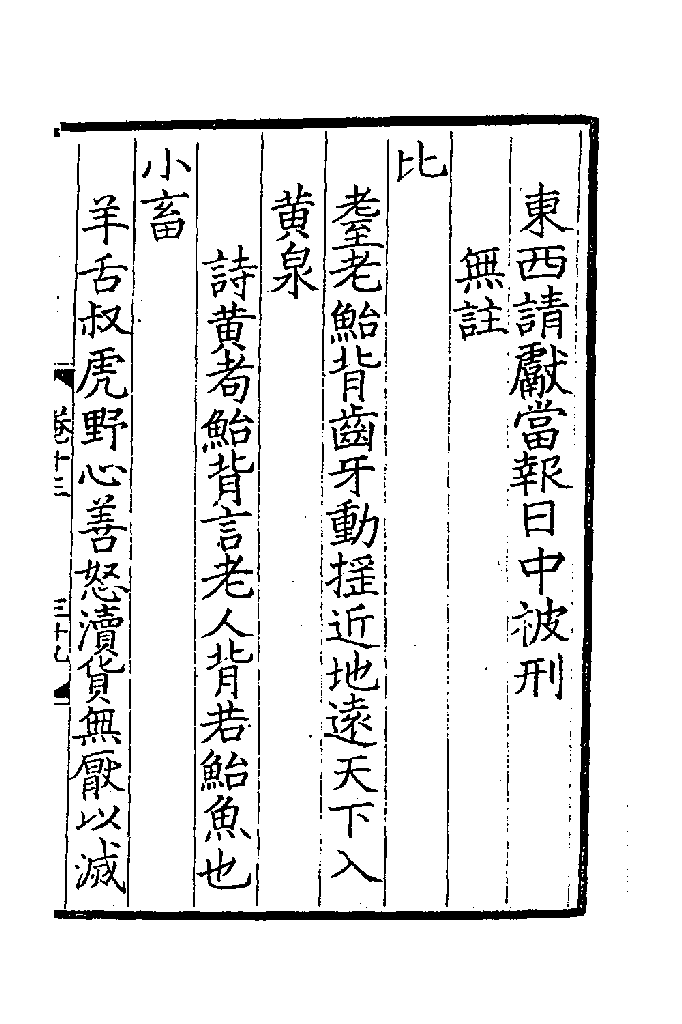 東西請獻當報日中被刑
無註
比
耋老鮐背齒牙動揺近地遠天下入
黄泉
詩黄耇鮐背言老人背若鮐魚也
小畜
羊舌叔虎野心善怒瀆貨無厭以滅
卷十三
三十九